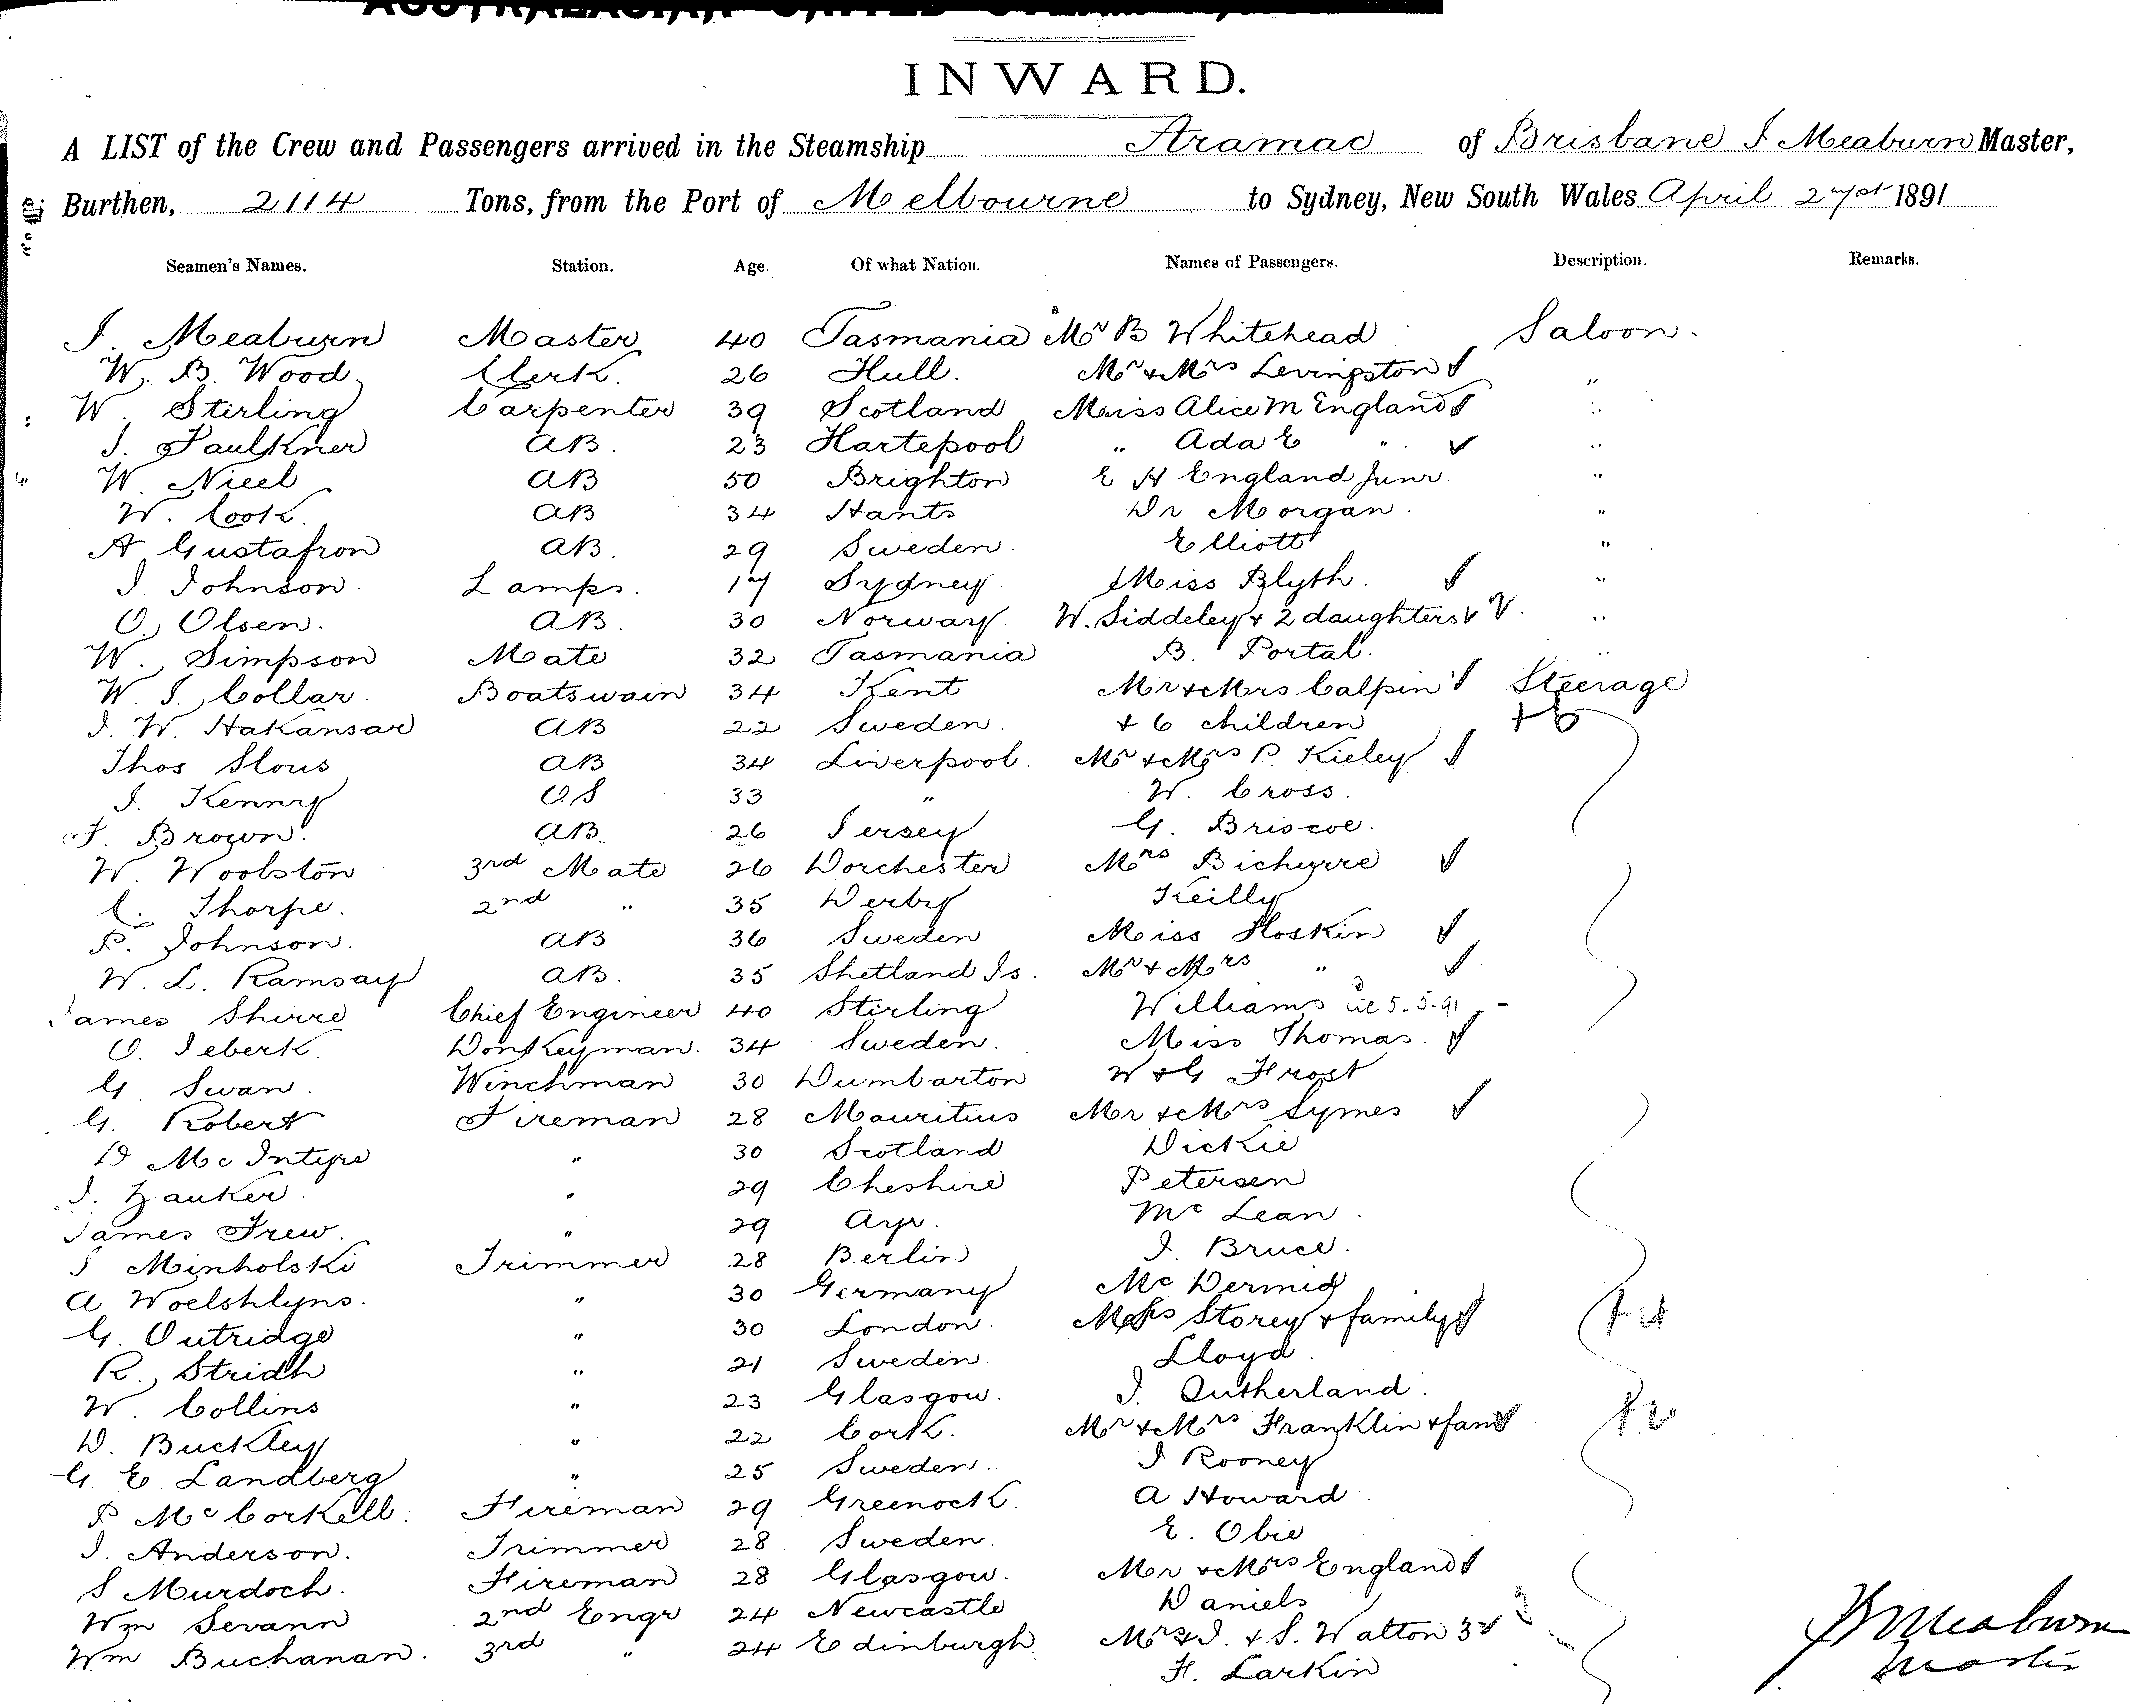 INWARD.
A LIST of the Crew and Passengers arrived in the Steamship Aramac of Brisbane J Meaburn Master,
Burthen, 2114 Tons, from the Port of Melbourne to Sydney, New South Wales April 1891
Seamen's Names. Station. Age. Of what Nation. Names of Passengers. Description. Remarks.
J. Meaburn Master 40 Tasmania Mr B Whitehead Saloon.
W. B. Wood Clerk. 26 Hull. Mr & Mrs Levingston "
W. Stirling Carpenter 39 Scotland Miss Alice M England "
J. Faulkner AB. 23 Hartepool " Ada E " "
W. Nicel AB 50 Brighton E H England Junr "
W. Cook. AB 34 Hants Dr Morgan. "
A Gustafron AB. 29 Sweden. Elliott "
J Johnson. Lamps. 17 Sydney. Miss Blyth. "
O. Olsen. AB. 30 Norway. W. Siddeley & 2 daughters "
W. Simpson Mate 32 Tasmania B. Portal. "
W. J. Collar. Boatswain 34 Kent Mr & Mrs Calpin Steerage
J. W. Hakansar AB 22 Sweden. & 6 children +6
Thos Slous AB 34 Liverpool. Mr & Mrs P. Kieley
J. Kenny OS 33 " W. Cross.
J. Brown. AB. 26 Jersey G. Briscoe.
W. Woolston 3rd Mate 26 Dorchester Mrs
C. Thorpe. 2nd " 35 Derby Keilly
P. Johnson. AB 36 Sweden Miss Hoskin
W. L. Ramsay AB. 35 Shetland Is. Mr & Mrs "
James Shirre Chief Engineer 40 Stirling Williams 5.5.91
O. Jeberk. Donkeyman. 34 Sweden. Miss Thomas.
G Swan. Winchman 30 Dumbarton W & G Frost
G. Robert Fireman 28 Mauritius Mr & Mrs Symes
D McIntyre " 30 Scotland Dickie
J. Zauker. " 29 Cheshire Petersen
James Frew. " 29 Ayr. McLean.
J Minholski Trimmer 28 Berlin J. Bruce.
A Woelshlyns. " 30 Germany McDermid
G. Outridge " 30 London. Storey & family
R. Stridh " 21 Sweden. Lloyd.
W. Collins " 23 Glasgow. J. Sutherland.
D. Buckley " 22 Cork. Mr & Mrs Franklin & fam
G E Landberg " 25 Sweden. J Rooney
P McCorkell. Fireman 29 Greenock. A Howard
J. Anderson. Trimmer 28 Sweden. E. Obie
S Murdoch. Fireman 28 Glasgow. Mr & Mrs England
Wm Sevann 2nd Engr 24 Newcastle Daniels
Wm Buchanan. 3rd " 24 Edinburgh J. & S. Walton 3
H. Larkin
J Meaburn
Master